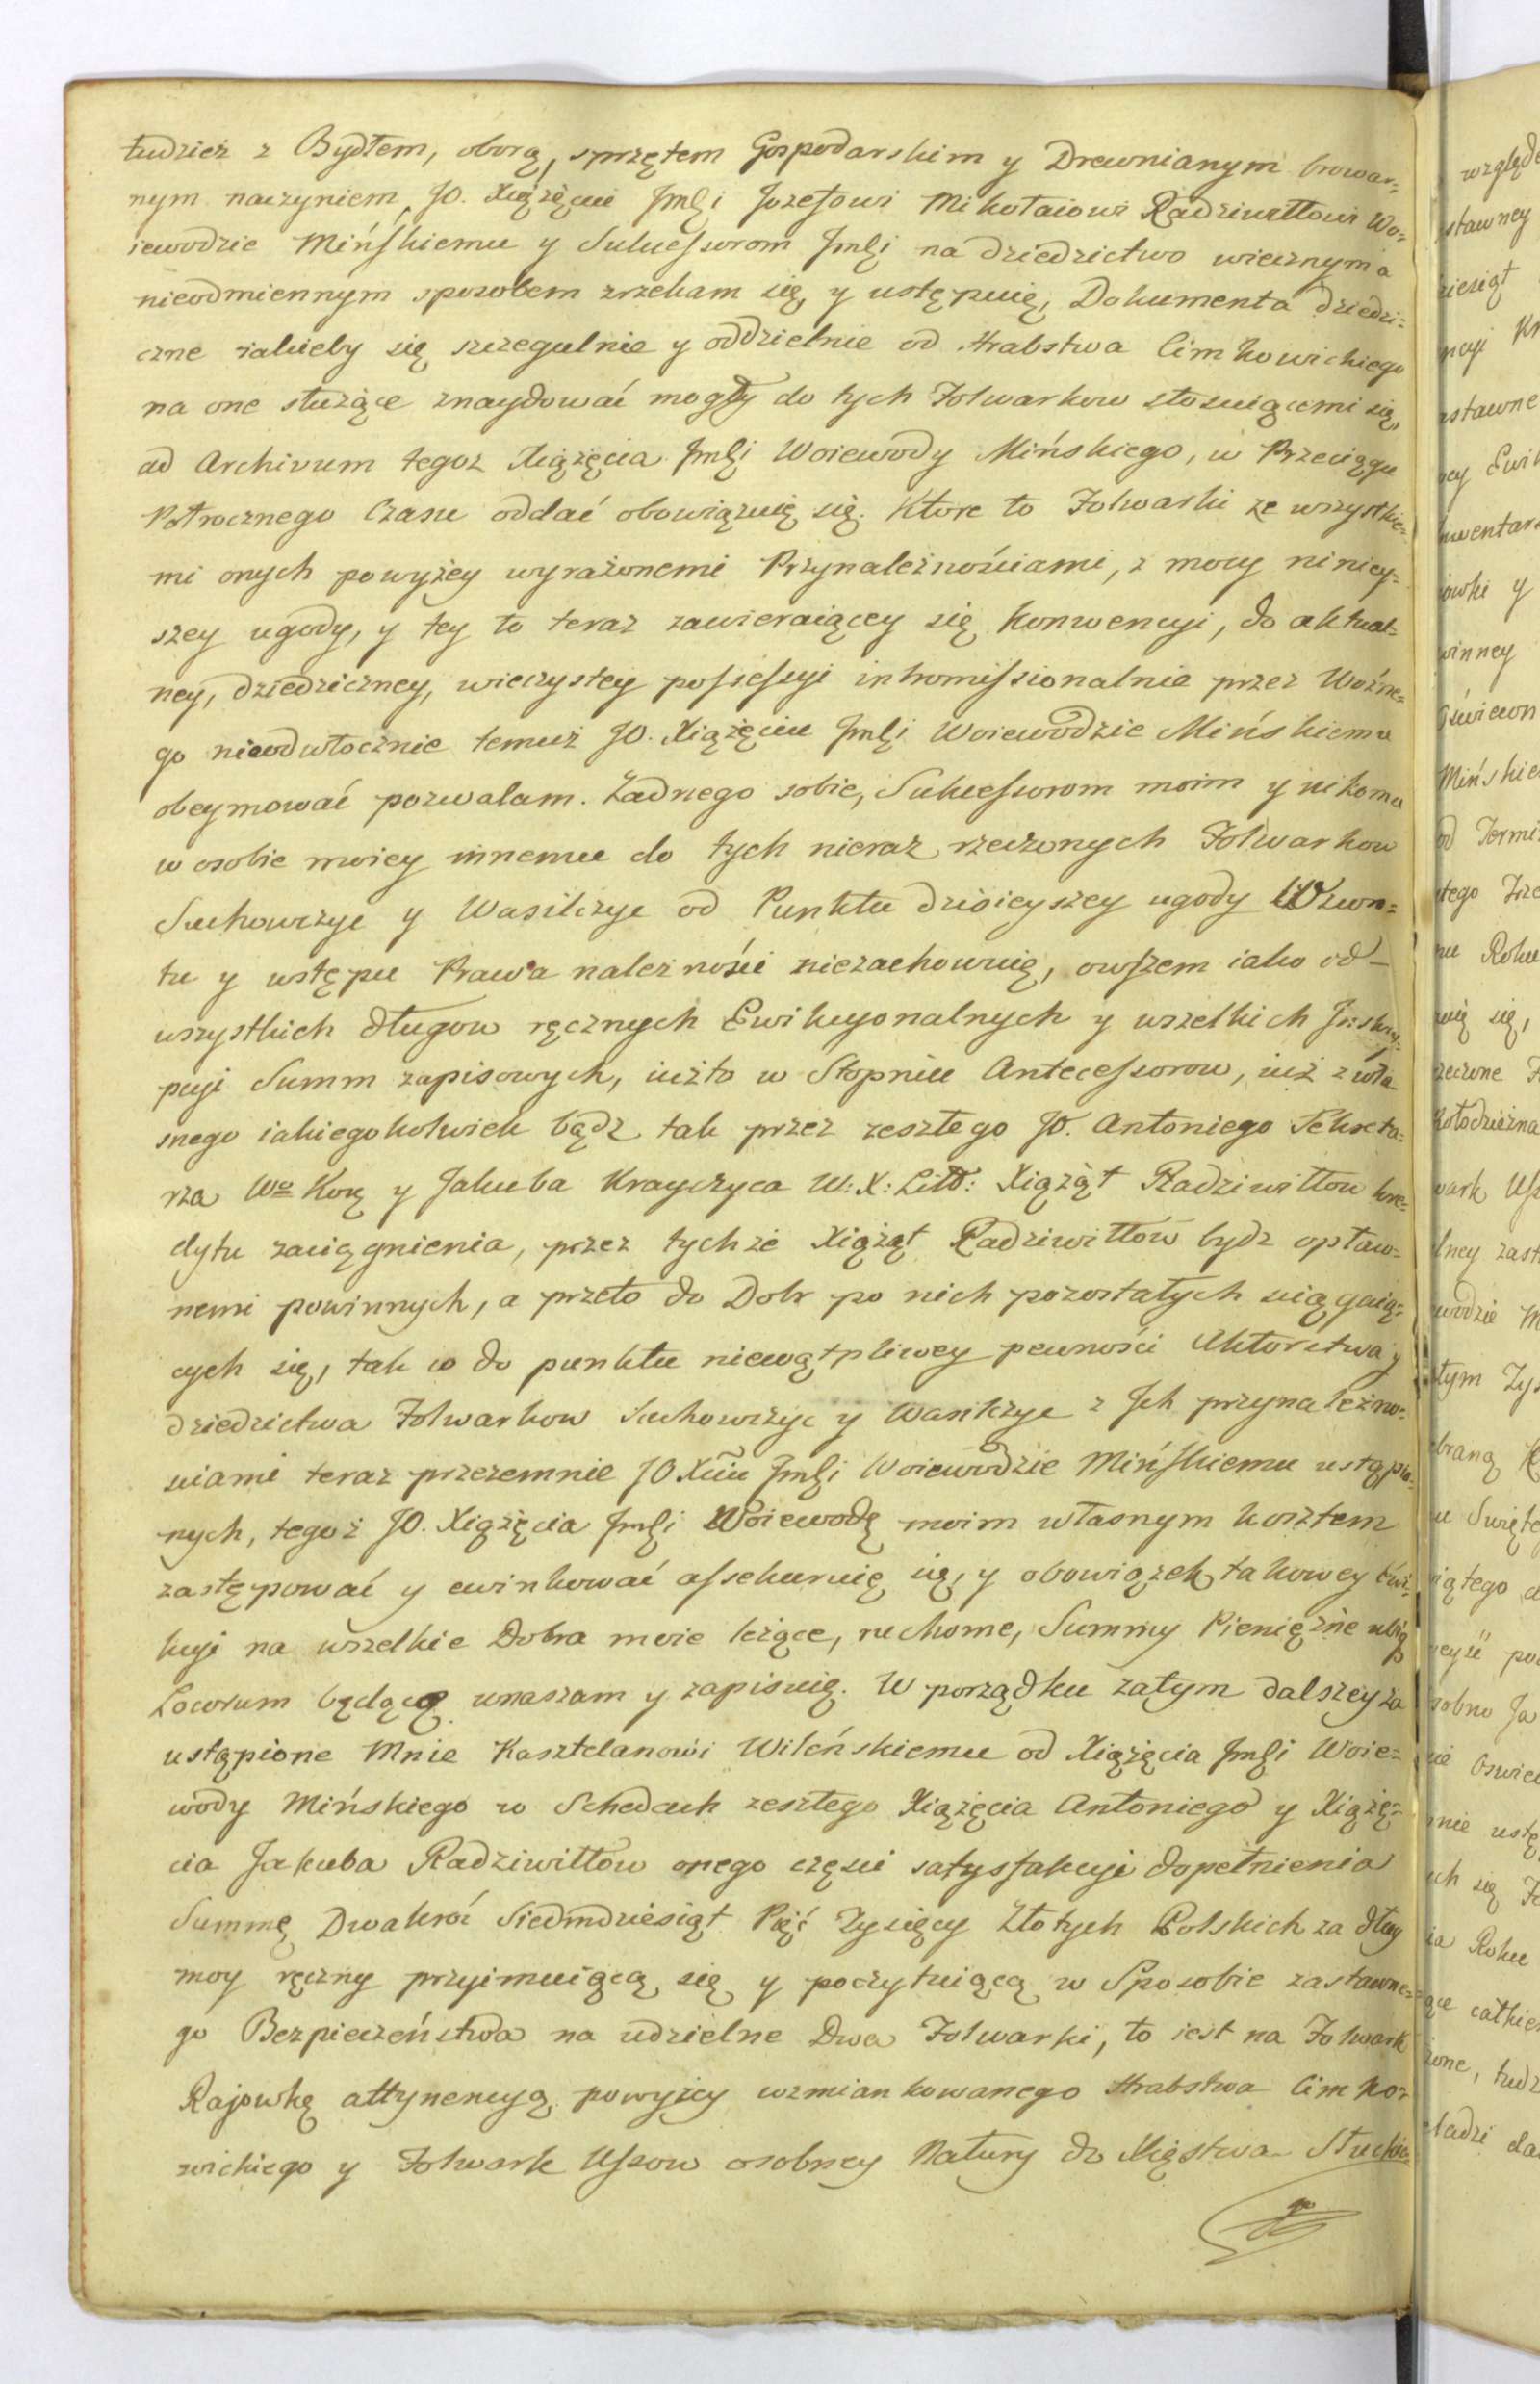 tudzież z Bydłem, oborą, sprzętem Gospodarskim y Drewnianym browar=
nym naczyniem, JO. Xiążęciu Jmci Jozefowi Mikołaiowi Radziwiłłowi Wo=
iewodzie Mińskiemu y Sukcessorom Jmci na dziedzictwo wiecznym a
nieodmiennym sposobem zrzekam się, y ustępuię, Dokumenta dziedzi=
czne iakieby się szczegulnie y oddzielnie od Hrabstwa Cimkowickiego
na one służące znaydować mogły do tych Folwarkow stosuiącemi się,
ad Archivum tegoz Xiążęcia Jmci Woiewody Mińskiego, w Przeciągu
Połrocznego Czasu oddać obowiązuię się. Ktore to Folwarki ze wszystkie=
mi onych powyżey wyrażonemi Przynależnościami, z mocy niniey=
szey ugody, y tey to teraz zawieraiącey się Konwencyi, do aktual=
ney, dziedziczney, wieczystey possessyi intromissionalnie przez Woźne=
go nieodwłocznie temuż JO. Xiążęciu Jmci Woiewodzie Mińskiemu
obeymować pozwalam. Żadnego sobie, Sukcessorom moim y nikomu
w osobie moiey innemu do tych nieraz rzeczonych Folwarkow
Suchowczyc y Wasilczyc od Punktu dzisieyszey ugody Wzwro=
tu y ustępu Prawa należności niezachowuię, owszem iako od
wszystkich długow ręcznych Ewikcyonalnych y wszelkich Jnskry=
pcyi Summ zapisowych, iużto w Stopniu Antecessorow, iuż z wła=
snego iakiegokolwiek bądz tak przez zeszłego JO. Antoniego Sekreta=
rza Wo Korę y Jakuba Krayczyca W: X: Litt: Xiążąt Radziwiłłow kre=
dytu zaciągnienia, przez tychże Xiążąt Radziwiłłow bydz opłaco=
nemi powinnych, a przeto do Dobr po nich pozostałych sciągaią=
cych się, tak co do punktu niewątpliwey pewności Aktorstwa y
dziedzictwa Folwarkow Suchowczyc y Wasilczyc z Jch przynależno=
sciami teraz przezemnie JO Xciu Jmci Woiewodzie Mińskiemu ustąpio=
nych, tegoż JO. Xiążęcia Jmci Woiewodę moim własnym kosztem
zastępować y ewinkować assekuruię się, y obowiązek takowey Ewi=
kcyi na wszelkie Dobra moie leżące, ruchome, Summy Pieniężne ubiq
Locorum będące wnaszam y zapisuię. W porządku zatym dalszey za
ustąpione Mnie Kasztelanowi Wileńskiemu od Xiążęcia Jmci Woie=
wody Mińskiego w Schedach zeszłego Xiążęcia Antoniego y Xiążę=
cia Jakuba Radziwiłłow onego części satysfakcyi dopełnienia
Summę Dwakroć Siedmdziesiąt Pięć Tysięcy Złotych Polskich za dług
moy ręczny przyimuiącą się y poczytuiącą w Sposobie zastawne=
go Bezpieczeństwa na udzielne Dwa Folwarki, to iest na Folwark
Rajowkę attynencyą powyżey wzmiankowanego Hrabstwa Cimko=
wickiego y Folwark Uszow osobney Natury do Xięstwa Słuckie=
go